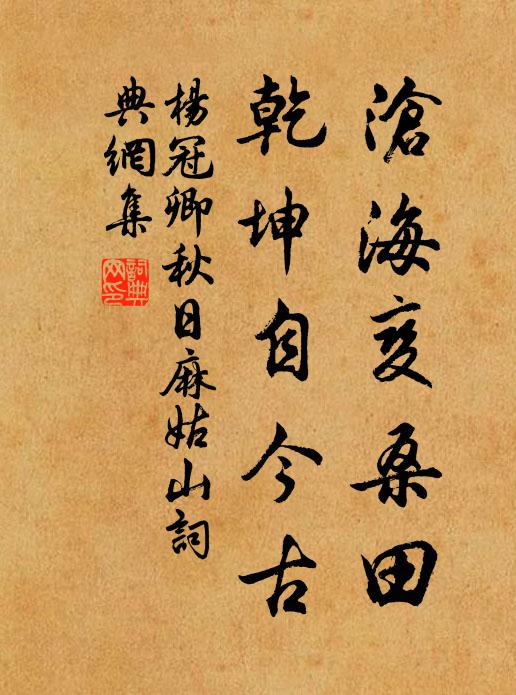 滄海變桑田
乾坤自今古
楊冠卿秋日麻姑山詞
典網集
詞典
網印